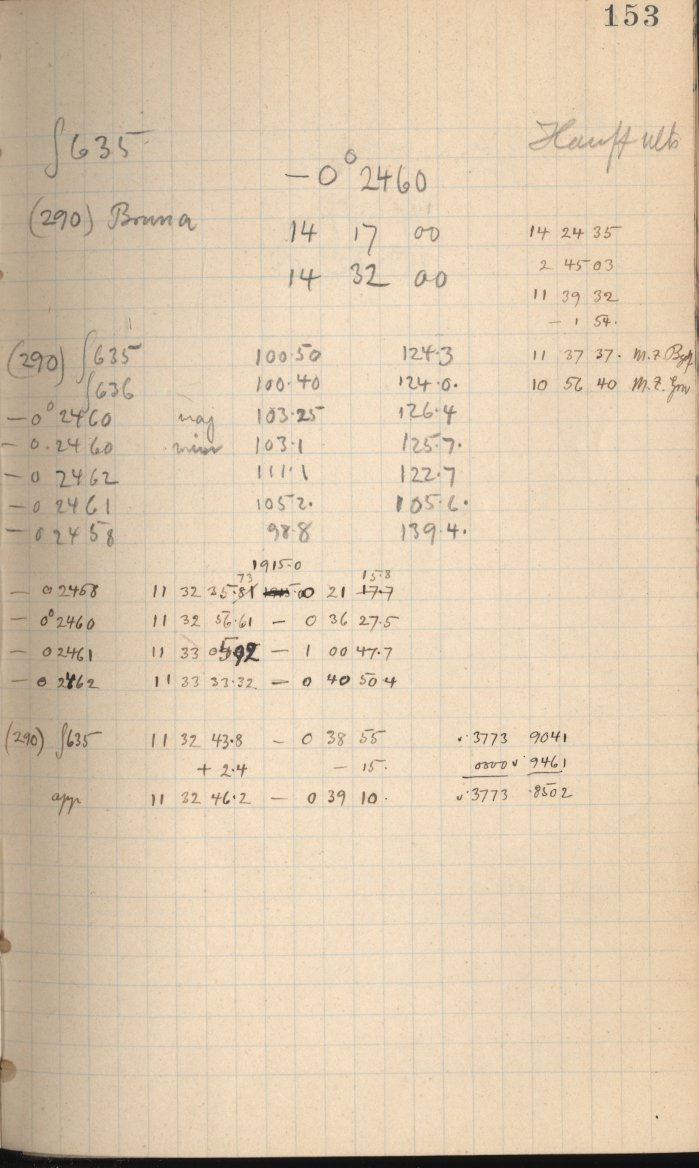 153
∫635 Hauff ult
-0° 2460
(290) Bruna 14 17 00 14 24 35
14 32 00 2 45 03
11 39 32
- 1 54.
(290) ∫635 100.50 124.3 11 37 37. M.Z.
∫636 100.40 124.0. 10 56 40 M.Z. Grw
-0° 2460 maj 103.25 126.4
-0.2460 min 103.1 125.7.
-0 2462 111.1 122.7
-0 2461 105.2. 105.6.
-0 2458 98.8 139.4.
1915.0
73 15.8
- 0 2458 11 32 35.81 1915.0 0 21 17.7
- 0° 2460 11 32 56.61 - 0 36 27.5
- 0 2461 11 33 - 1 00 47.7
- 0 2462 11 33 33.32 - 0 40 50.4
(290) ∫635 11 32 43.8 - 0 38 55 .3773 9041
+ 2.4 - 15. 0000 9461
app 11 32 46.2 - 0 39 10. .3773 .8502